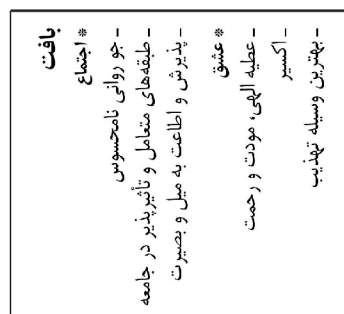 بافت
* اجتماع
- جو روانی نامحسوس
- طبقه‌های متعامل و تأثیرپذیر در جامعه
- پذیرش و اطاعت به میل و بصیرت
* عشق
- عطیه الهی، مودت و رحمت
- اکسیر
- بهترین وسیله تهذیب